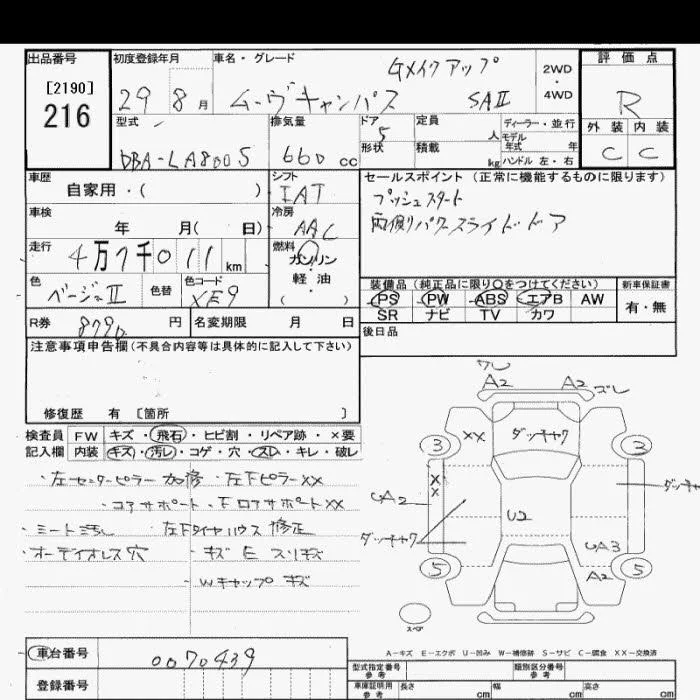 出品番号
[2190]
216
初度登録年月
29 8月
車名・グレード
Gメイクアップ
ムーヴキャンバス SAⅡ
2WD
・
4WD
評価点
R
外装 内装
C C
型式
DBA-LA800S
排気量
660 cc
ドア 5
形状
定員 人
積載 kg
ディーラー・並行
モデル年式 年
ハンドル 左・右
車歴
自家用・( )
シフト
IAT
セールスポイント (正常に機能するものに限ります)
プッシュスタート
両側パワースライドドア
車検
年 月( 日)
冷房
AAC
走行
4万7千011km
燃料
ガソリン
軽油
・( )
色
ベージュⅡ
色替
色コード
XE9
装備品(純正品に限り○をつけてください)
PS PW ABS エアB AW
SR ナビ TV カワ
新車保証書
有・無
R券 8790円
名変期限 月 日
後日品
注意事項申告欄(不具合内容等は具体的に記入して下さい)
修復歴 有 [箇所 ]
検査員 FW キズ・飛石・ヒビ割・リペア跡・×要
記入欄 内装 キズ・汚レ・コゲ・穴・スレ・キレ・破レ
・左センターピラー 加修 ・左下ピラーXX
・コアサポート ・下ロアサポートXX
・シート汚レ ・左下タイヤハウス 修正
・オーディオレス穴 ・キズ E スリキズ
・Wキャップ キズ
ワレ
A2 A2 ズレ
3 XX ダッチャク 3
XX
UA2
ダッチャク
U2
ダッチャク
UA3
5 A2 5
スペア
A−キズ E−エクボ U−凹み W−補修跡 S−サビ C−腐食 XX−交換済
車台番号
0070439
登録番号
型式指定番号
参考
類別区分番号
参考
車庫証明用
参考
長さ cm 幅 cm 高さ cm